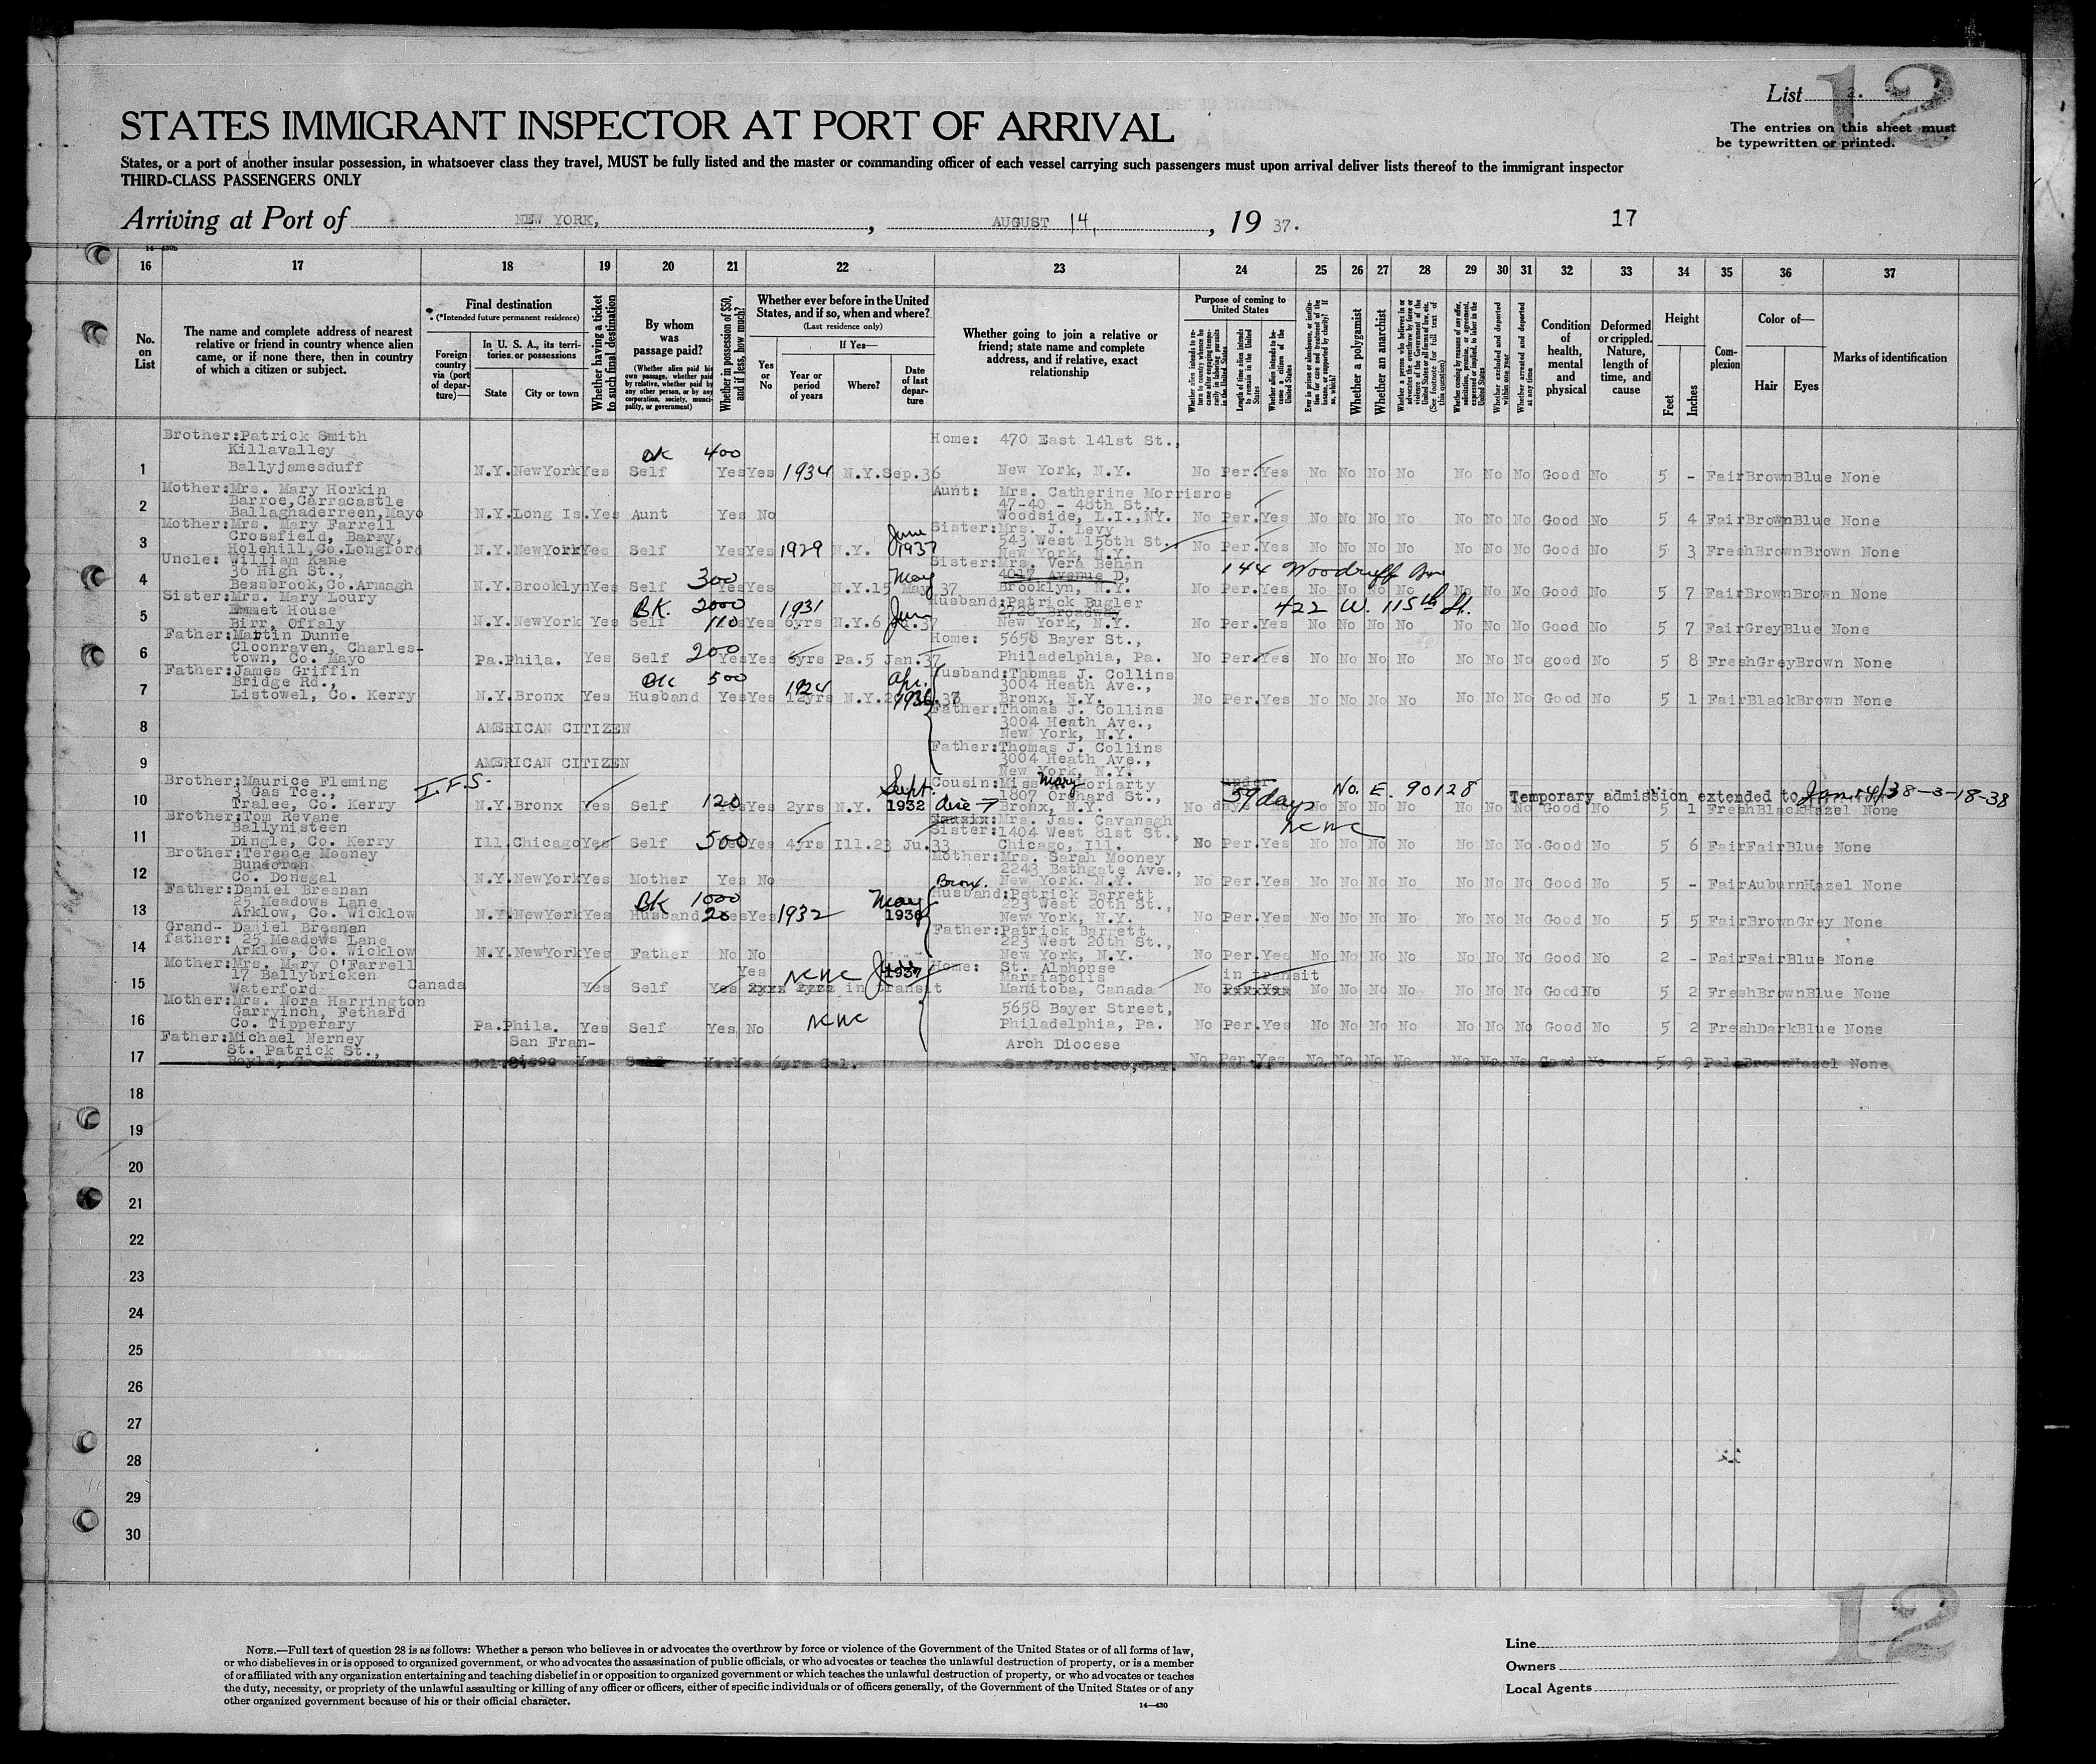 List 2.
12
STATES IMMIGRANT INSPECTOR AT PORT OF ARRIVAL
The entries on this sheet must
be typewritten or printed.
States, or a port of another insular possession, in whatsoever class they travel, MUST be fully listed and the master or commanding officer of each vessel carrying such passengers must upon arrival deliver lists thereof to the immigrant inspector
THIRD-CLASS PASSENGERS ONLY
Arriving at Port of NEW YORK, , AUGUST 14, , 19 37.
17
16 17 18 19 20 21 22 23 24 25 26 27 28 29 30 31 32 33 34 35 36 37
No. on List
The name and complete address of nearest relative or friend in country whence alien came, or if none there, then in country of which a citizen or subject.
Final destination
(*Intended future permanent residence)
Foreign country via (port of departure)—
In U. S. A., its territories, or possessions
State
City or town
Whether having a ticket to such final destination
By whom was passage paid?
(Whether alien paid his own passage, whether paid by relative, whether paid by any other person, or by any corporation, society, municipality, or government)
Whether in possession of $50, and if less, how much?
Whether ever before in the United States, and if so, when and where?
(Last residence only)
Yes or No
If Yes—
Year or period of years
Where?
Date of last departure
Whether going to join a relative or friend; state name and complete address, and if relative, exact relationship
Purpose of coming to United States
Whether alien intends to return to country whence he came after engaging temporarily in laboring pursuits in the United States
Length of time alien intends to remain in the United States
Whether alien intends to become a citizen of the United States
Ever in prison or almshouse, or institution for care and treatment of the insane, or supported by charity? If so, which?
Whether a polygamist
Whether an anarchist
Whether a person who believes in or advocates the overthrow by force or violence of the Government of the United States or all forms of law, etc. (See footnote for full text of this question)
Whether coming by reason of any offer, solicitation, promise, or agreement, expressed or implied, to labor in the United States
Whether excluded and deported within one year
Whether arrested and deported at any time
Condition of health, mental and physical
Deformed or crippled. Nature, length of time, and cause
Height
Feet
Inches
Complexion
Color of—
Hair
Eyes
Marks of identification
Brother: Patrick Smith
Killavalley
OK 400
Home: 470 East 141st St.,
1 Ballyjamesduff N.Y. NewYork Yes Self Yes Yes 1934 N.Y. Sep.36 New York, N.Y. No Per. Yes No No No No No No No Good No 5 - Fair Brown Blue None
Mother: Mrs. Mary Horkin
Barroe, Carracastle
Aunt: Mrs. Catherine Morrisroe
47-40 - 48th St.,
2 Ballaghaderreen, Mayo N.Y. Long Is. Yes Aunt Yes No Woodside, L.I., NY. No Per. Yes No No No No No No No Good No 5 4 Fair Brown Blue None
Mother: Mrs. Mary Farrell
Crossfield, Barry,
June
Sister: Mrs. J. Levy
543 West 156th St.
3 Holehill, Co. Longford N.Y. NewYork Yes Self Yes Yes 1929 N.Y. 1937 New York, N.Y. No Per. Yes No No No No No No No Good No 5 3 Fresh Brown Brown None
Uncle: William Kane
36 High St.,
300
May
Sister: Mrs. Vera Behan
4017 Avenue D,
144 Woodruff Ave
4 Bessbrook, Co. Armagh N.Y. Brooklyn Yes Self Yes Yes N.Y. 15 May 37 Brooklyn, N.Y. No Per. Yes No No No No No No No Good No 5 7 Fair Brown Brown None
Sister: Mrs. Mary Loury
Emmet House
BK. 2000
110
1931
Jun
Husband: Patrick Bugler
2728 Broadway
422 W. 115th St.
5 Birr, Offaly N.Y. NewYork Yes Self Yes Yes 6yrs N.Y. 6 .37 New York, N.Y. No Per. Yes No No No No No No No Good No 5 7 Fair Grey Blue None
Father: Martin Dunne
Cloonraven, Charles-
200
Home: 5658 Bayer St.,
6 town, Co. Mayo Pa. Phila. Yes Self Yes Yes 6yrs Pa. 5 Jan.37 Philadelphia, Pa. No Per. Yes No No No No No No No good No 5 8 Fresh Grey Brown None
Father: James Griffin
Bridge Rd.,
OK 500
1924
Apr.
1936
Husband: Thomas J. Collins
3004 Heath Ave.,
7 Listowel, Co. Kerry N.Y. Bronx Yes Husband Yes Yes 12yrs N.Y. Bronx, N.Y. No Per. Yes No No No No No No No Good No 5 1 Fair Black Brown None
Father: Thomas J. Collins
3004 Heath Ave.,
8 AMERICAN CITIZEN New York, N.Y.
Father: Thomas J. Collins
3004 Heath Ave.,
9 AMERICAN CITIZEN New York, N.Y.
Brother: Maurice Fleming
3 Gas Tce.,
I.F.S.
120
Sept.
Cousin: Miss Mary Moriarty
1807 Orchard St.,
under
59 days
No. E. 90128
Temporary admission extended to Jan. 14/38-3-18-38
10 Tralee, Co. Kerry N.Y. Bronx Yes Self Yes Yes 2yrs N.Y. 1932 Bronx, N.Y. No days No No No No No No No Good No 5 1 Fresh Black Hazel None
Brother: Tom Revane
Ballynisteen
500
Mrs. Jas. Cavanagh
Sister: 1404 West 81st St.,
NCNC
11 Dingle, Co. Kerry Ill. Chicago Yes Self Yes Yes 4yrs Ill. 23 Ju.33 Chicago, Ill. No Per. Yes No No No No No No No Good No 5 6 Fair Fair Blue None
Brother: Terence Mooney
Bundoran
Mother: Mrs. Sarah Mooney
2243 Bathgate Ave.,
Bronx.
12 Co. Donegal N.Y. NewYork Yes Mother Yes No New York. N.Y. No Per. Yes No No No No No No No Good No 5 - Fair Auburn Hazel None
Father: Daniel Bresnan
25 Meadows Lane
BK 1000
20
May
Husband: Patrick Barrett
223 West 20th St.,
13 Arklow, Co. Wicklow N.Y. NewYork Yes Husband Yes Yes 1932 1936 New York, N.Y. No Per. Yes No No No No No No No Good No 5 5 Fair Brown Grey None
Grand- Daniel Bresnan
father: 25 Meadows Lane
Father: Patrick Barrett
223 West 20th St.,
14 Arklow, Co. Wicklow N.Y. NewYork Yes Father No No New York, N.Y. No Per. Yes No No No No No No No Good No 2 - Fair Fair Blue None
Mother: Mrs. Mary O'Farrell
17 Ballybricken
Yes
NCNC
1937
Home: St. Alphonse
Marriapolis
in transit
15 Waterford Canada Yes Self Yes in transit Manitoba, Canada No No No No No No No No Good No 5 2 Fresh Brown Blue None
Mother: Mrs. Nora Harrington
Garryinch, Fethard
NCNC
5658 Bayer Street,
16 Co. Tipperary Pa. Phila. Yes Self Yes No Philadelphia, Pa. No Per. Yes No No No No No No No Good No 5 2 Fresh Dark Blue None
Father: Michael Nerney
St. Patrick St.,
San Fran-
Arch Diocese
17 cisco Yes Self Yes 6yrs Cal. San Francisco, Cal. No Per. Yes No No No No No No No Good No 5 9 Pale Brown Hazel None
18
19
20
21
22
23
24
25
26
27
28
29
30
12
NOTE.—Full text of question 28 is as follows: Whether a person who believes in or advocates the overthrow by force or violence of the Government of the United States or of all forms of law,
or who disbelieves in or is opposed to organized government, or who advocates the assassination of public officials, or who advocates or teaches the unlawful destruction of property, or is a member
of or affiliated with any organization entertaining and teaching disbelief in or opposition to organized government or which teaches the unlawful destruction of property, or who advocates or teaches
the duty, necessity, or propriety of the unlawful assaulting or killing of any officer or officers, either of specific individuals or of officers generally, of the Government of the United States or of any
other organized government because of his or their official character.
14—430
Line
Owners
Local Agents